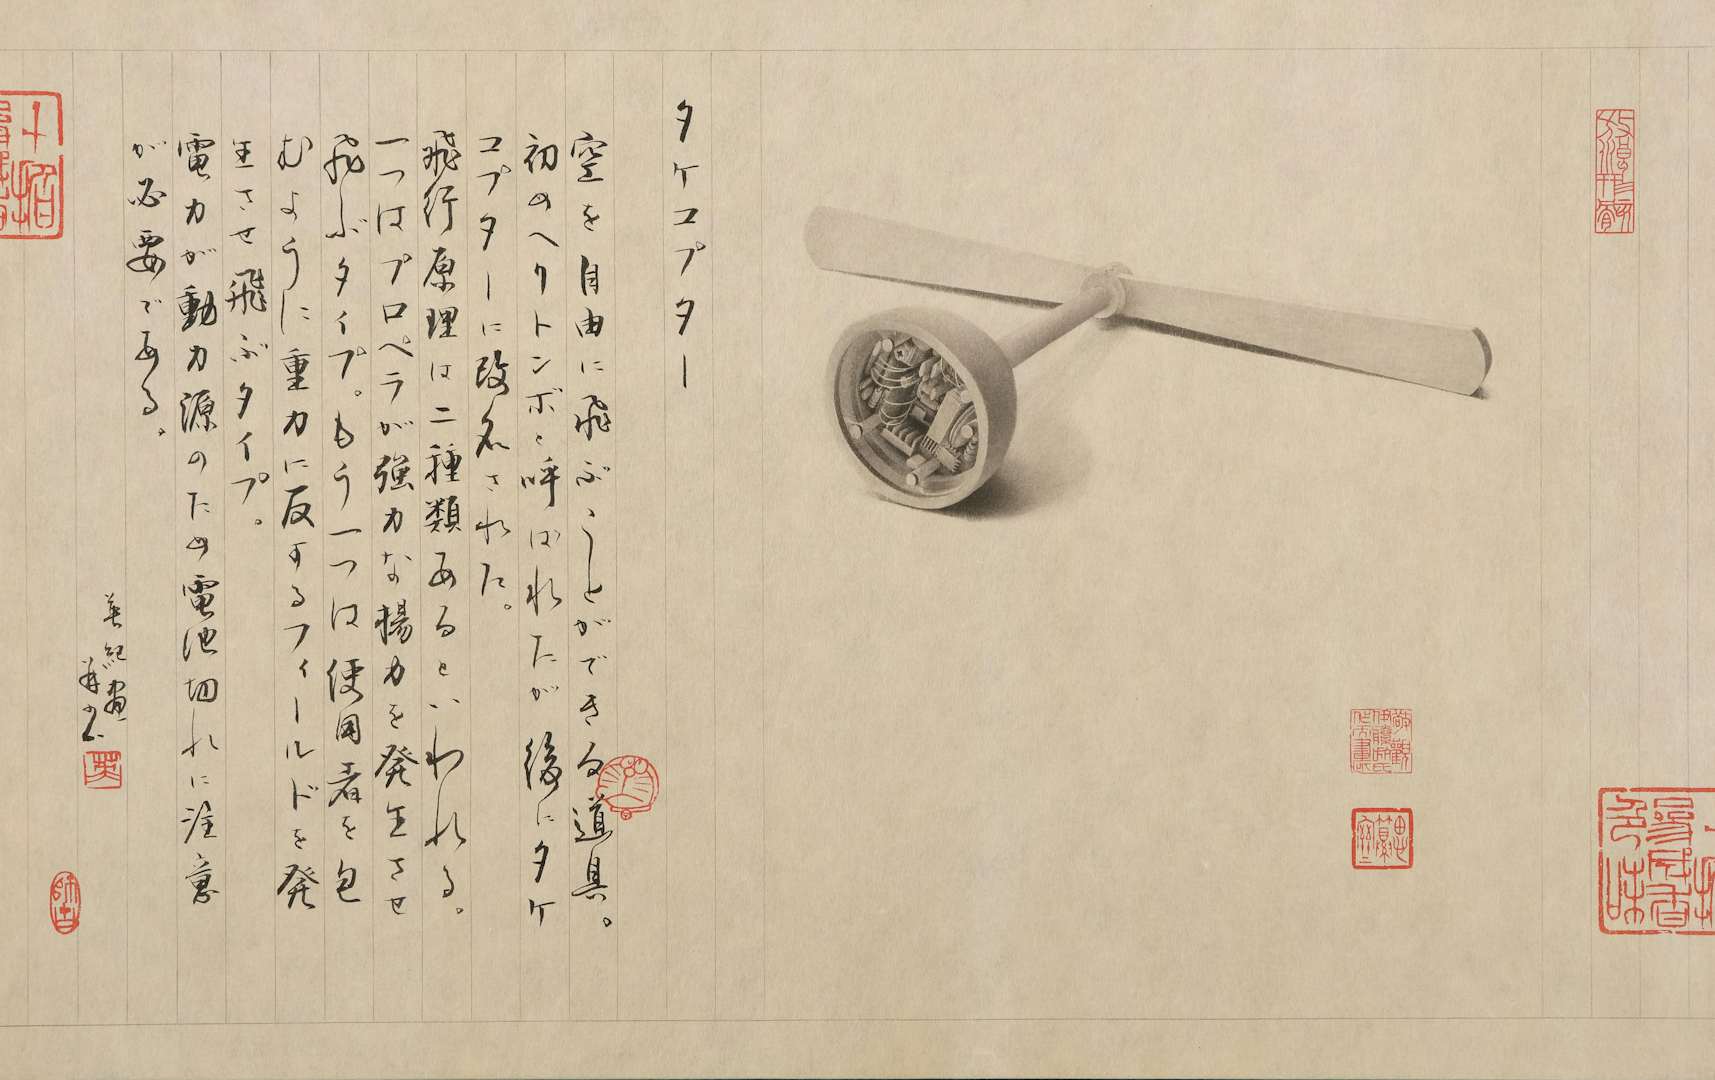 タケコプター
空を自由に飛ぶことができる道具。
初のヘリトンボと呼ばれたが後にタケ
コプターに改名された。
飛行原理は二種類あるといわれる。
一つはプロペラが強力な揚力を発生させ
飛ぶタイプ。もう一つは使用者を包
むように重力に反するフィールドを発
生させ飛ぶタイプ。
電力が動力源のため電池切れに注意
が必要である。